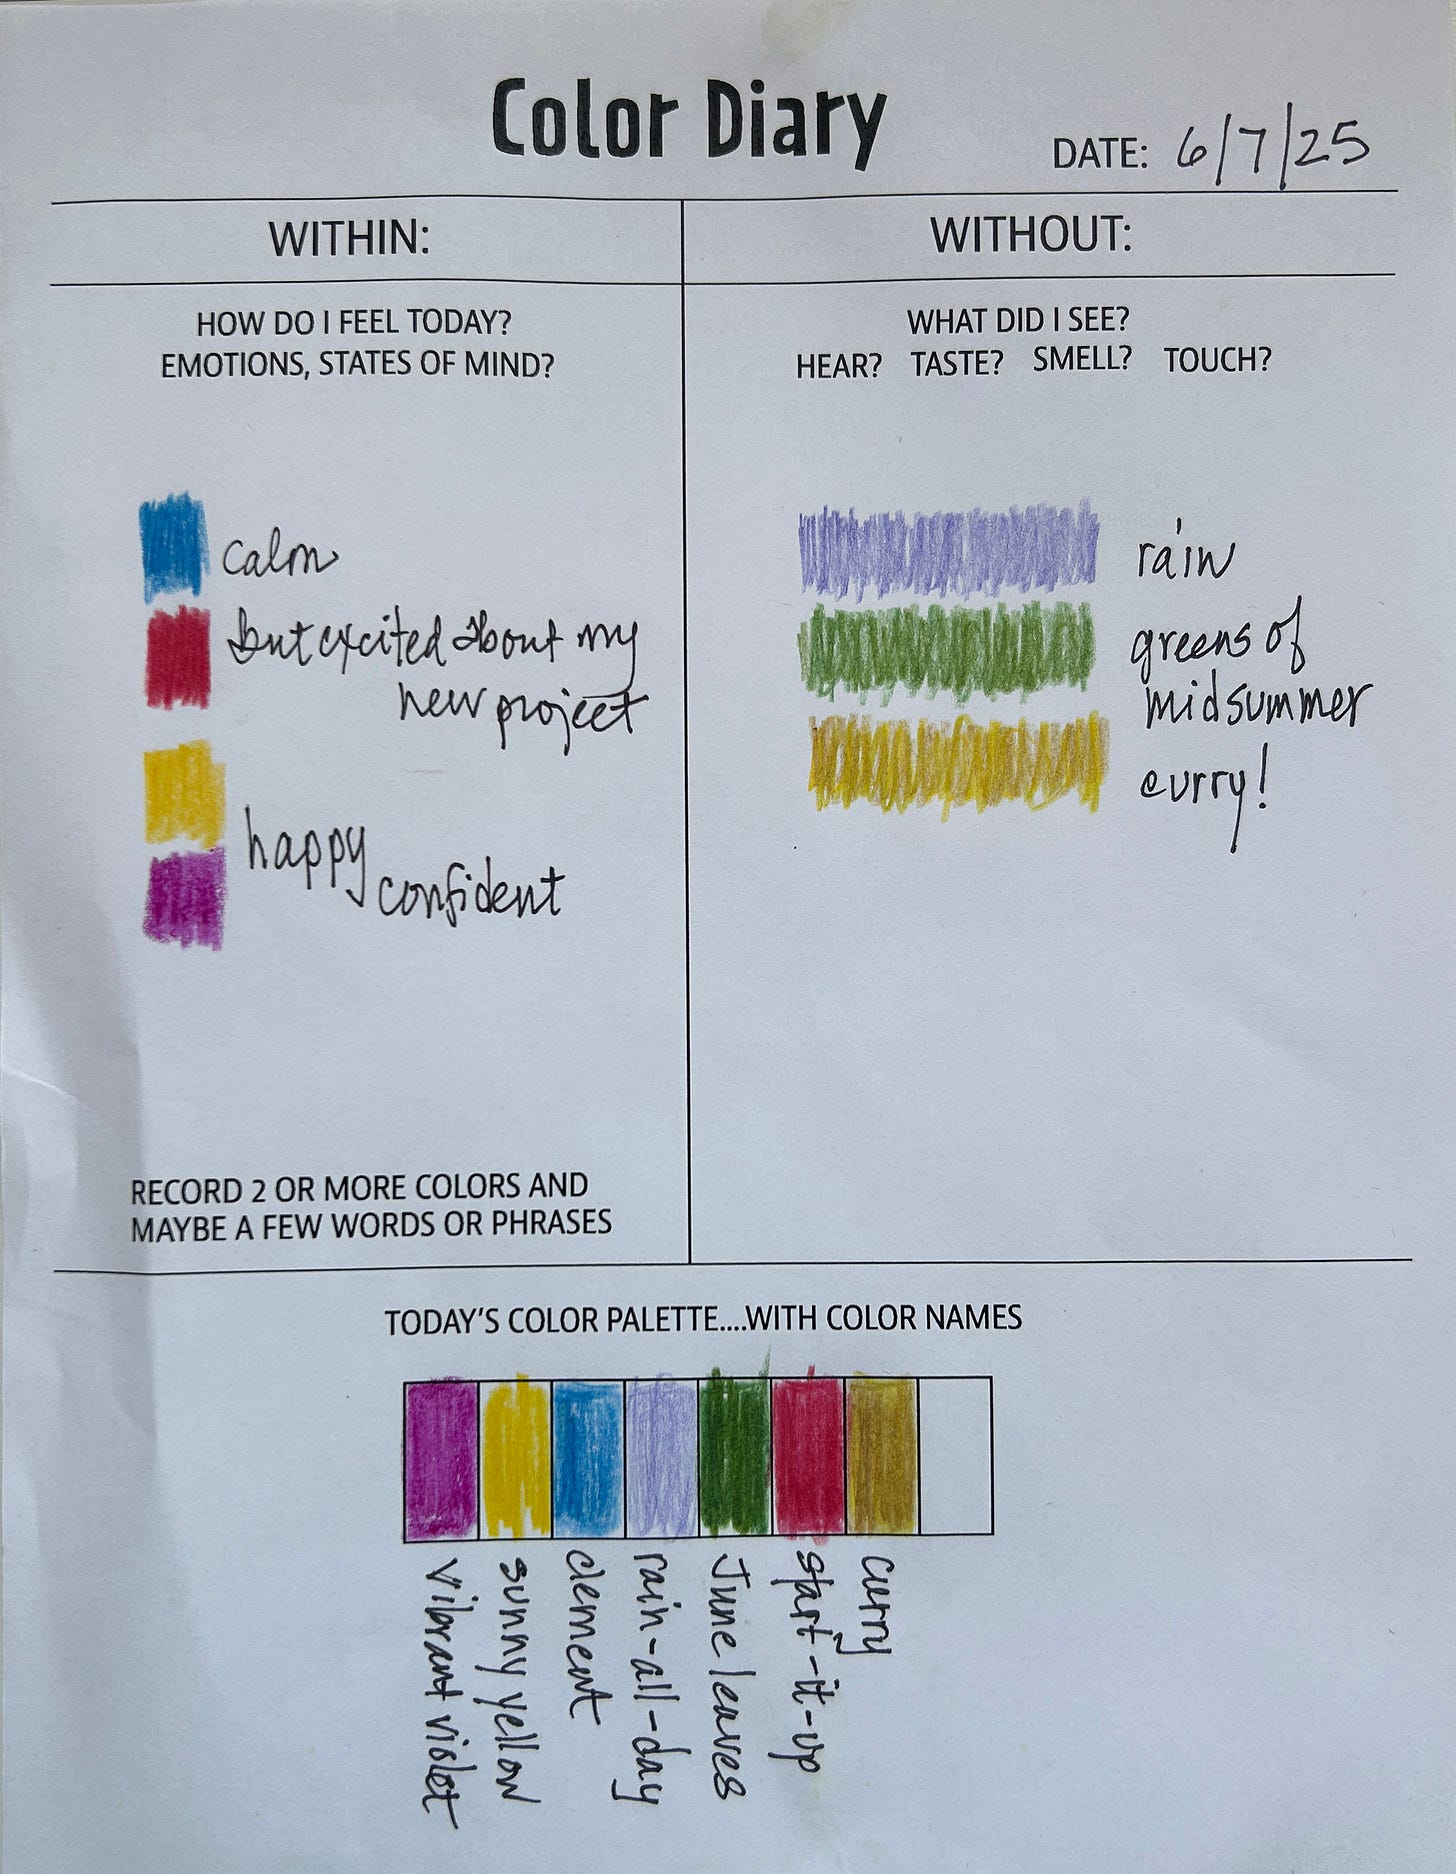 Color Diary
DATE: 6/7/25
WITHIN:
HOW DO I FEEL TODAY?
EMOTIONS, STATES OF MIND?
calm
but excited about my
new project
happy
confident
RECORD 2 OR MORE COLORS AND
MAYBE A FEW WORDS OR PHRASES
WITHOUT:
WHAT DID I SEE?
HEAR? TASTE? SMELL? TOUCH?
rain
greens of
midsummer
curry!
TODAY'S COLOR PALETTE....WITH COLOR NAMES
vibrant violet
sunny yellow
clement
rain-all-day
June leaves
start-it-up
curry